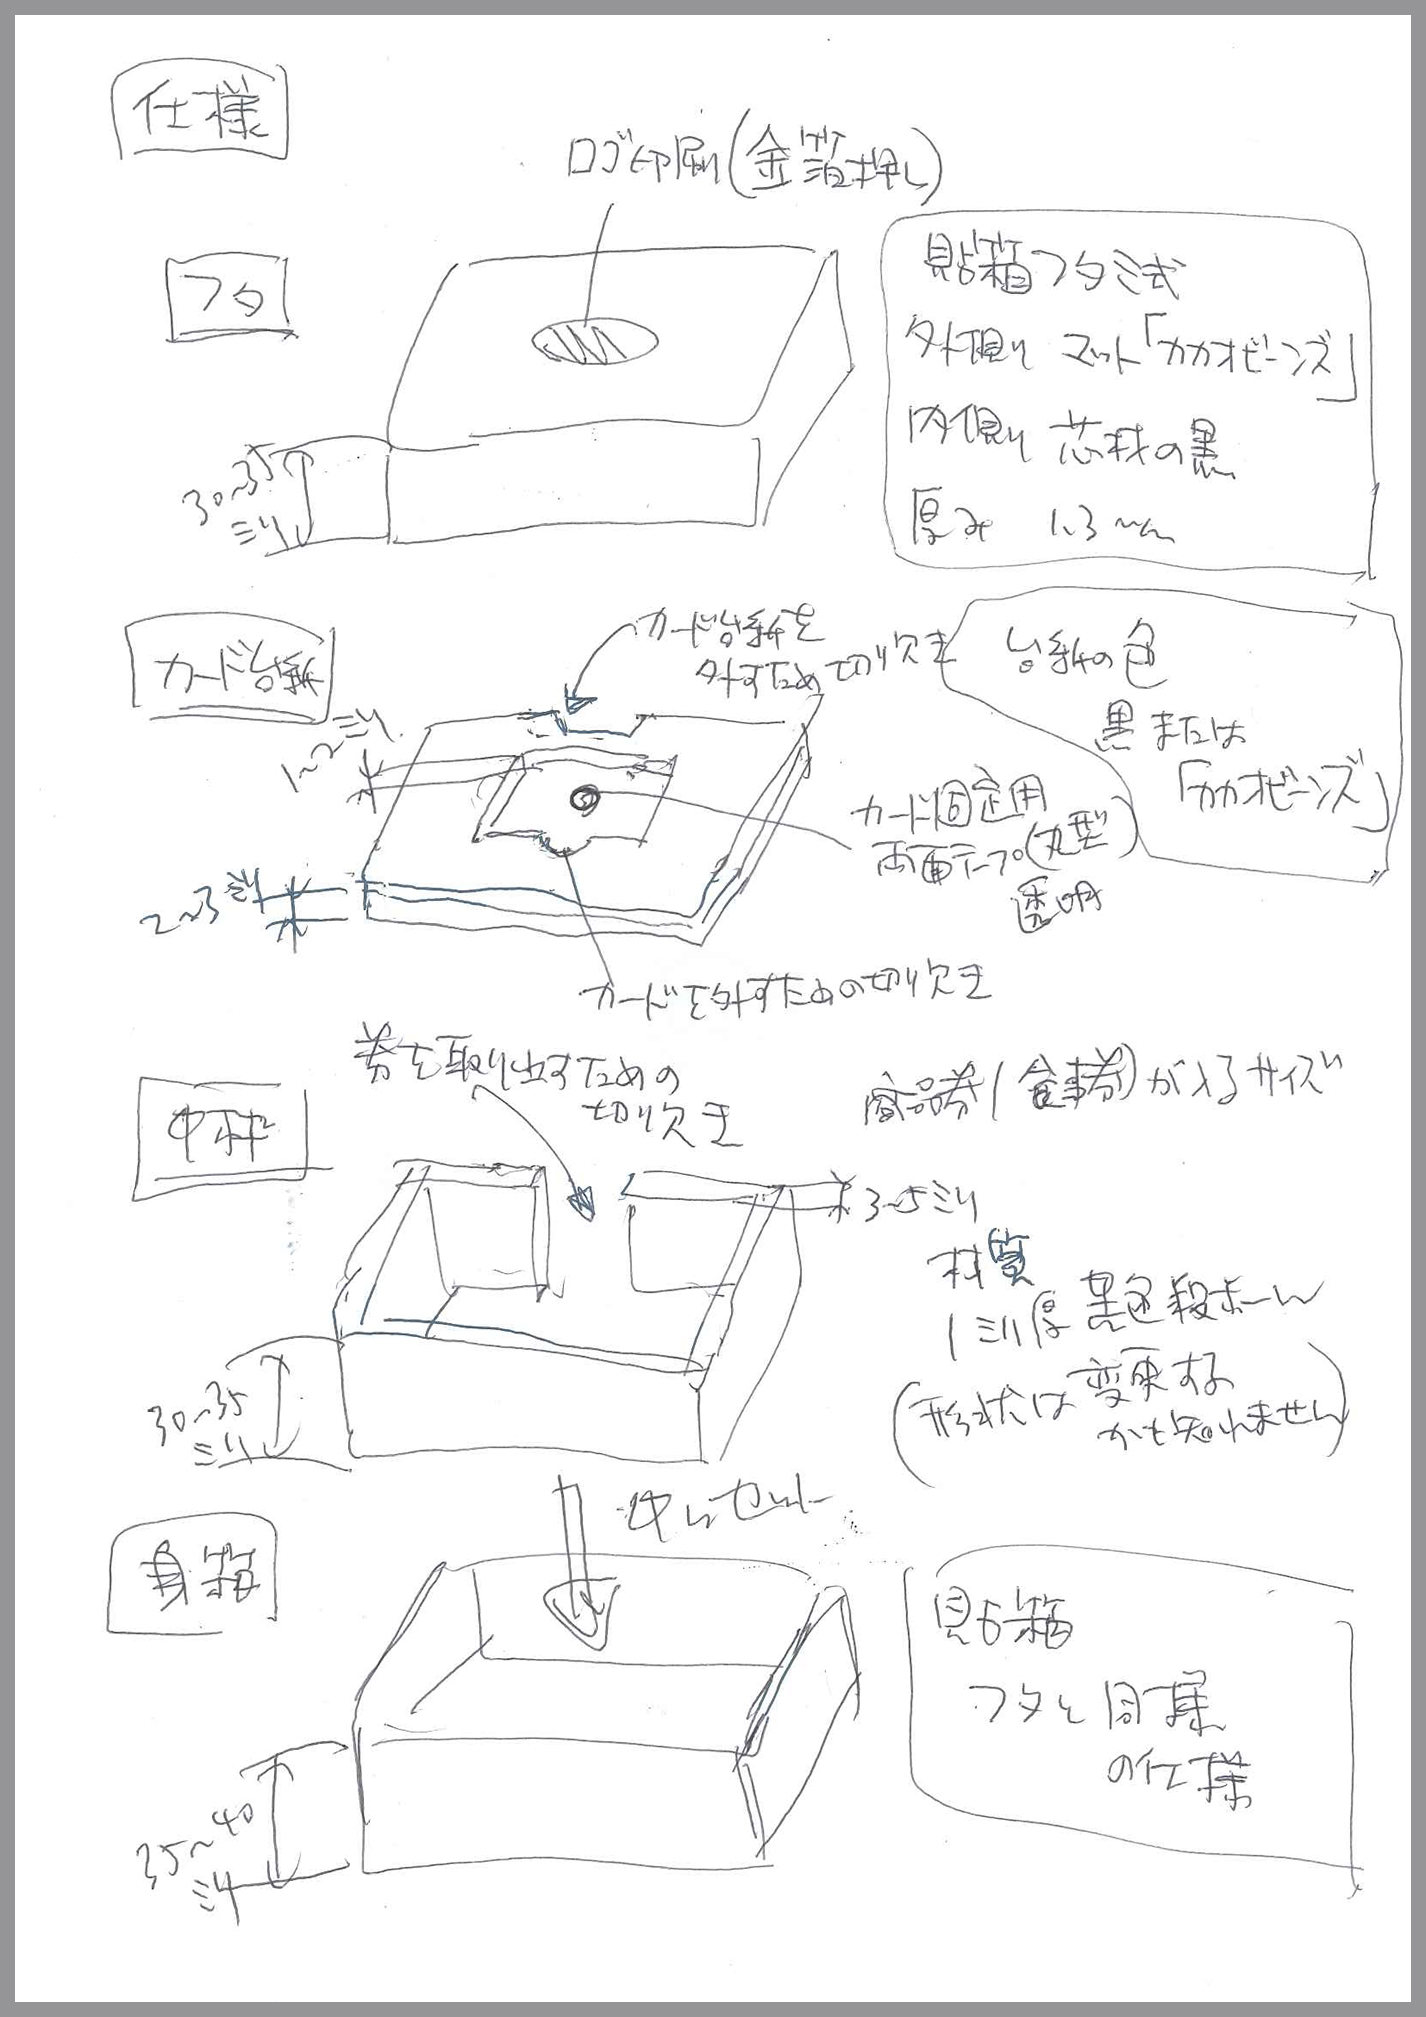 仕様
ロゴ印刷(金箔押し)
フタ
貼箱フタミ式
外側 マット「カカオビーンズ」
内側 芯材の黒
厚み 1.3mm
30~35
ミリ
カード台紙
カード台紙を
外すため切り欠き
台紙の色
黒または
「カカオビーンズ」
1~2ミリ
カード固定用
両面テープ(丸型)
透明
2~3ミリ
カードを外すための切り欠き
券を取り出すための
切り欠き
商品券(食事券)が入るサイズ
中枠
3~5ミリ
材質
1ミリ厚 黒色段ボール
(形状は変更する
かも知れません)
30~35
ミリ
中にセット
身箱
貼箱
フタと同様
の仕様
35~40
ミリ